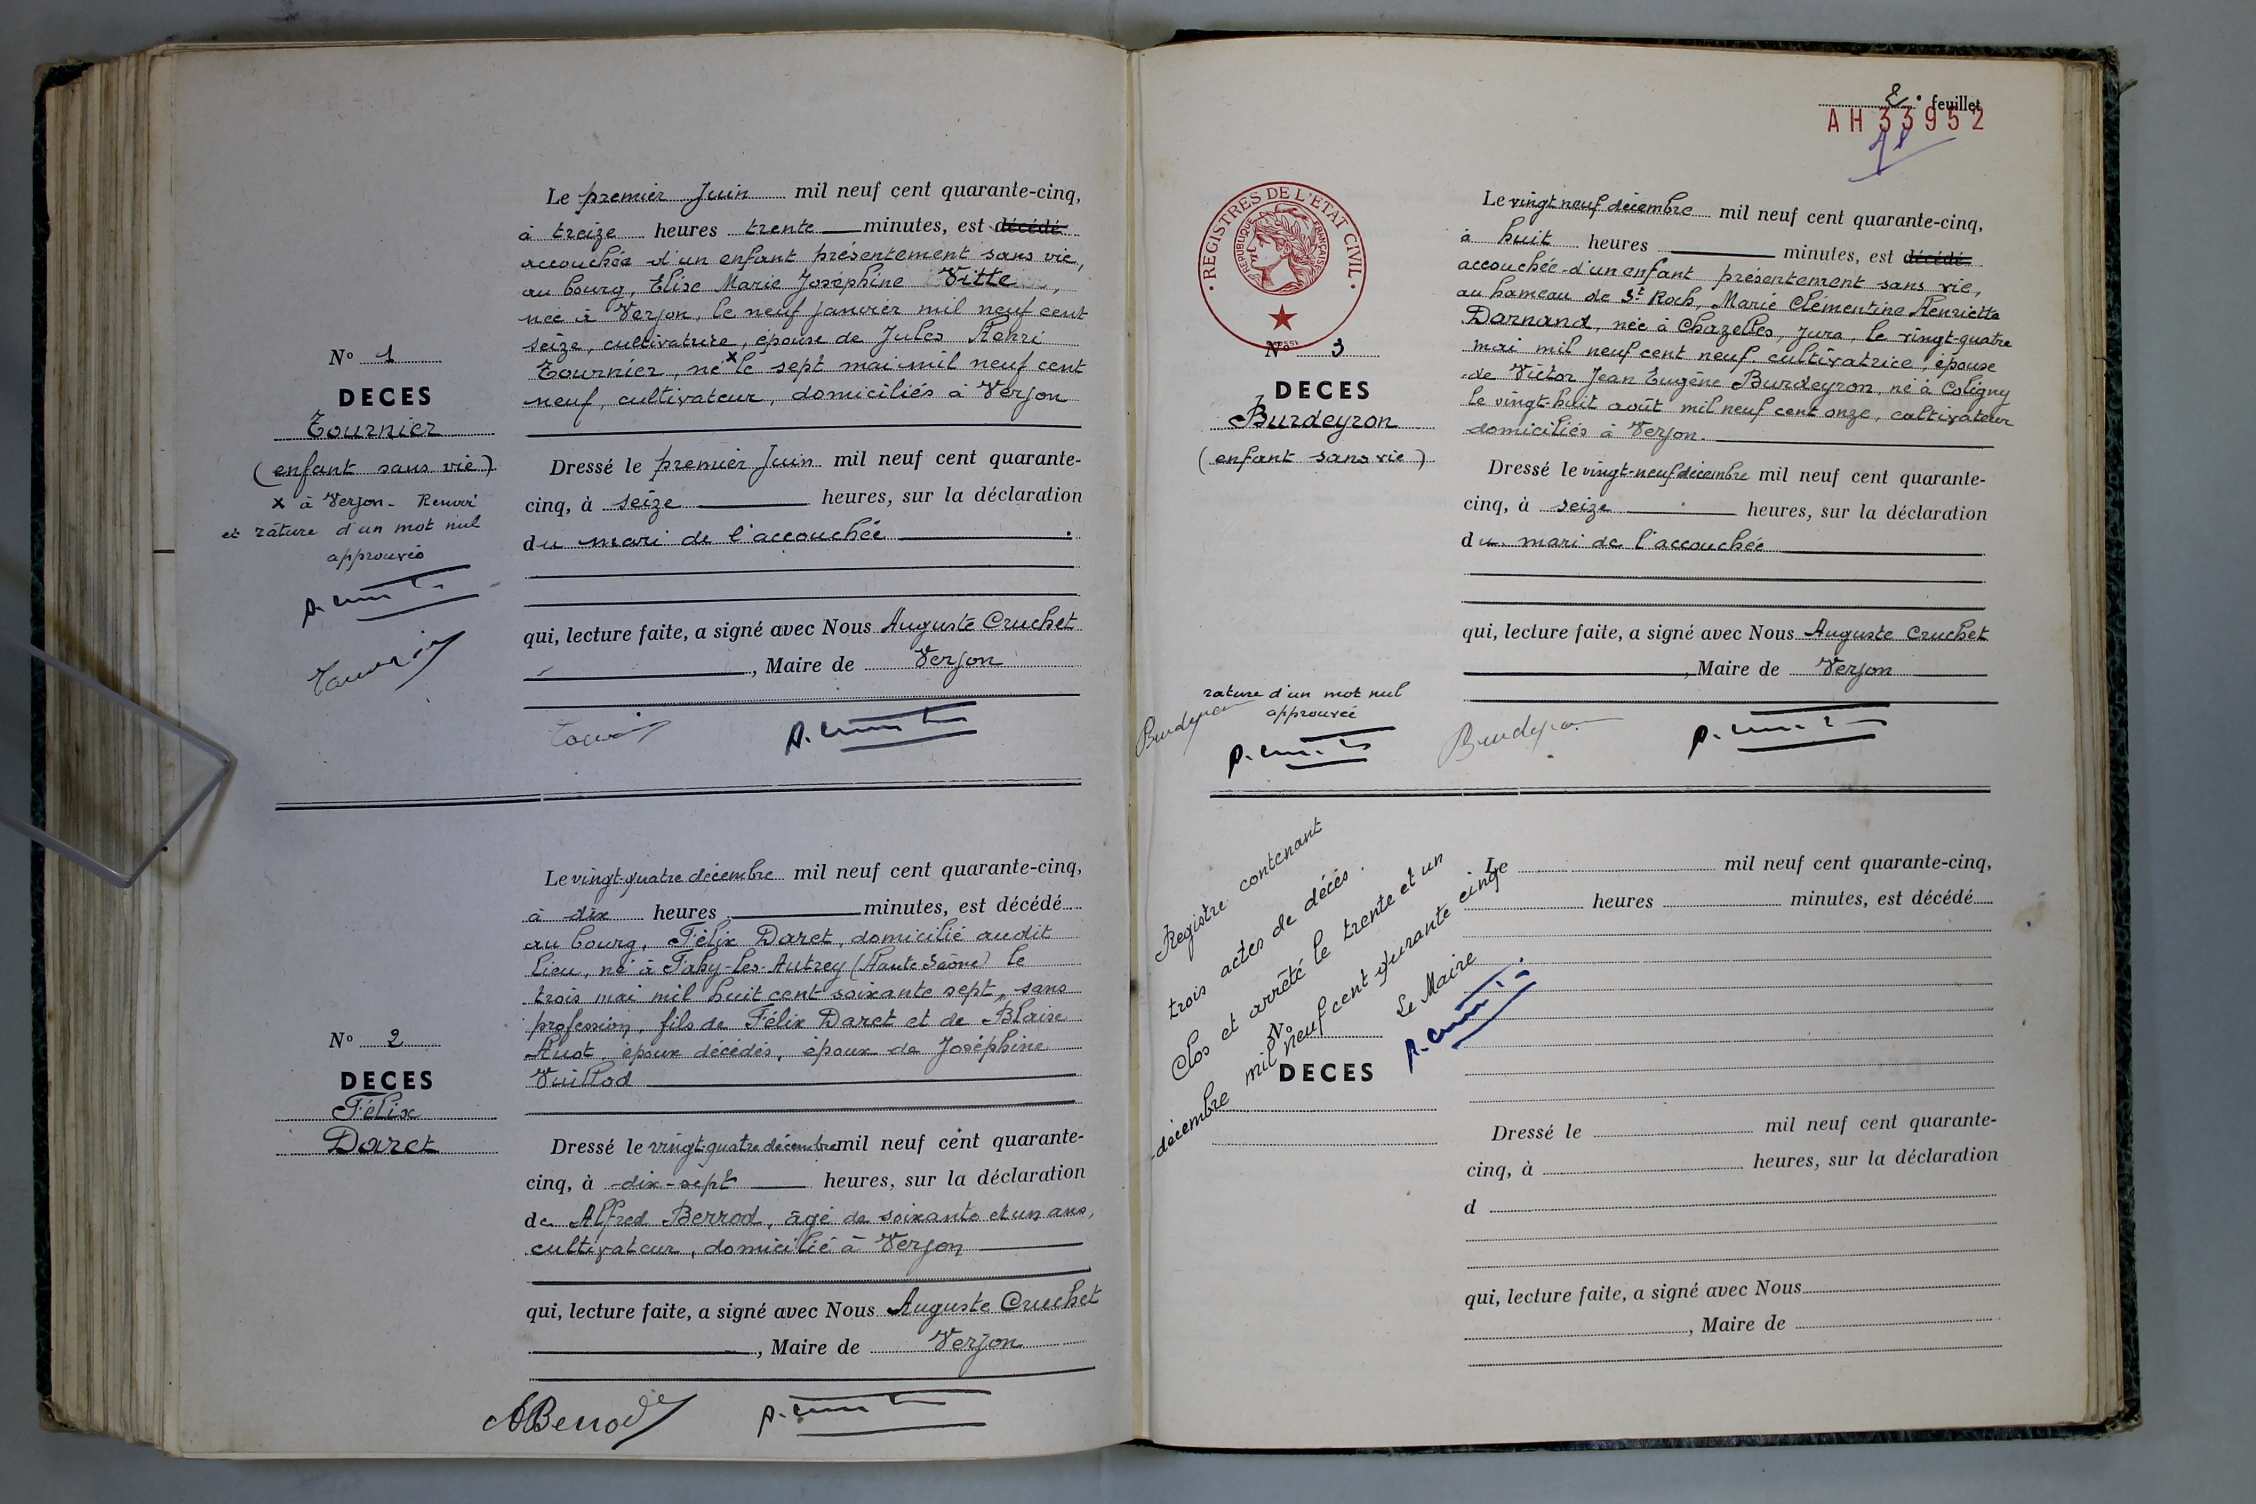 Le premier Juin mil neuf cent quarante-cinq,
à treize heures trente minutes, est décédé
accouchée d'un enfant présentement sans vie,
au bourg, Elise Marie Joséphine Vitte,
née à Verjon, le neuf janvier mil neuf cent
seize, cultivatrice, épouse de Jules Henri
Tournier, né x le sept mai mil neuf cent
neuf, cultivateur, domiciliés à Verjon
N° 1
DECES
Tournier
(enfant sans vie)
x à Verjon - Renvoi
et rature d'un mot nul
approuvés
Dressé le premier Juin mil neuf cent quarante-
cinq, à seize heures, sur la déclaration
du mari de l'accouchée
qui, lecture faite, a signé avec Nous Auguste Cruchet
, Maire de Verjon
Le vingt-quatre décembre mil neuf cent quarante-cinq,
à dix heures minutes, est décédé
au bourg, Félix Daret, domicilié audit
lieu, né à Fahy-les-Autrey (Haute Saône) le
trois mai mil huit cent soixante sept, sans
profession, fils de Félix Daret et de Blaise
Huot, époux décédés, époux de Joséphine
Vuillod
N° 2
DECES
Félix
Daret
Dressé le vingt-quatre décembre mil neuf cent quarante-
cinq, à dix-sept heures, sur la déclaration
de Alfred Berrod, âgé de soixante et un ans,
cultivateur, domicilié à Verjon
qui, lecture faite, a signé avec Nous Auguste Cruchet
, Maire de Verjon
ABerrod
2e feuillet
AH 33952
REGISTRES DE L'ETAT CIVIL
REPUBLIQUE FRANÇAISE
Le vingt neuf décembre mil neuf cent quarante-cinq,
à huit heures minutes, est décédé
accouchée d'un enfant présentement sans vie,
au hameau de St Roch, Marie Clémentine Henriette
Darnand, née à Chazelles, Jura, le vingt-quatre
mai mil neuf cent neuf, cultivatrice, épouse
de Victor Jean Eugène Burdeyron, né à Coligny
le vingt-huit août mil neuf cent onze, cultivateur
domiciliés à Verjon.
N° 3
DECES
Burdeyron
(enfant sans vie)
Dressé le vingt-neuf décembre mil neuf cent quarante-
cinq, à seize heures, sur la déclaration
du mari de l'accouchée
qui, lecture faite, a signé avec Nous Auguste Cruchet
, Maire de Verjon
rature d'un mot nul
approuvée
Burdeyron
Burdeyron
Registre contenant
trois actes de décès.
Clos et arrêté le trente et un
décembre mil neuf cent quarante cinq
Le Maire
Le mil neuf cent quarante-cinq,
heures minutes, est décédé
N°
DECES
Dressé le mil neuf cent quarante-
cinq, à heures, sur la déclaration
d
qui, lecture faite, a signé avec Nous
, Maire de